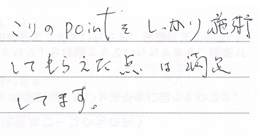 こりのpointをしっかり施術
してもらえた点は満足
してます。